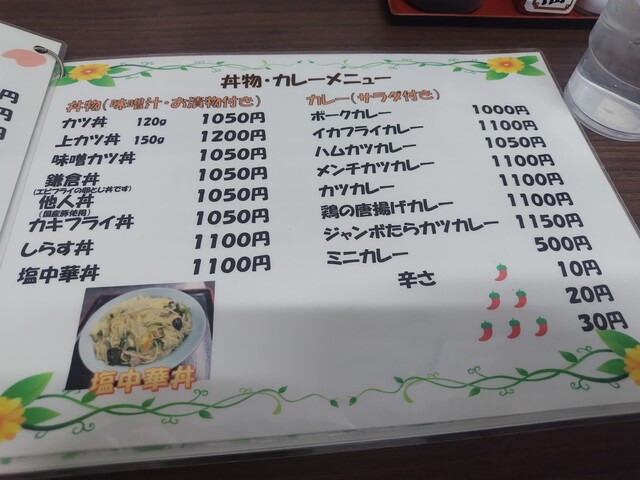 円
円
丼物・カレーメニュー
丼物(味噌汁・お漬物付き)
カツ丼 120g 1050円
上カツ丼 150g 1200円
味噌カツ丼 1050円
鎌倉丼 1050円
(エビフライの卵とじ丼です)
他人丼 1050円
(国産豚使用)
カキフライ丼 1050円
しらす丼 1100円
塩中華丼 1100円
塩中華丼
カレー(サラダ付き)
ポークカレー 1000円
イカフライカレー 1100円
ハムカツカレー 1050円
メンチカツカレー 1100円
カツカレー 1100円
鶏の唐揚げカレー 1100円
ジャンボたらカツカレー 1150円
ミニカレー 500円
辛さ 10円
20円
30円